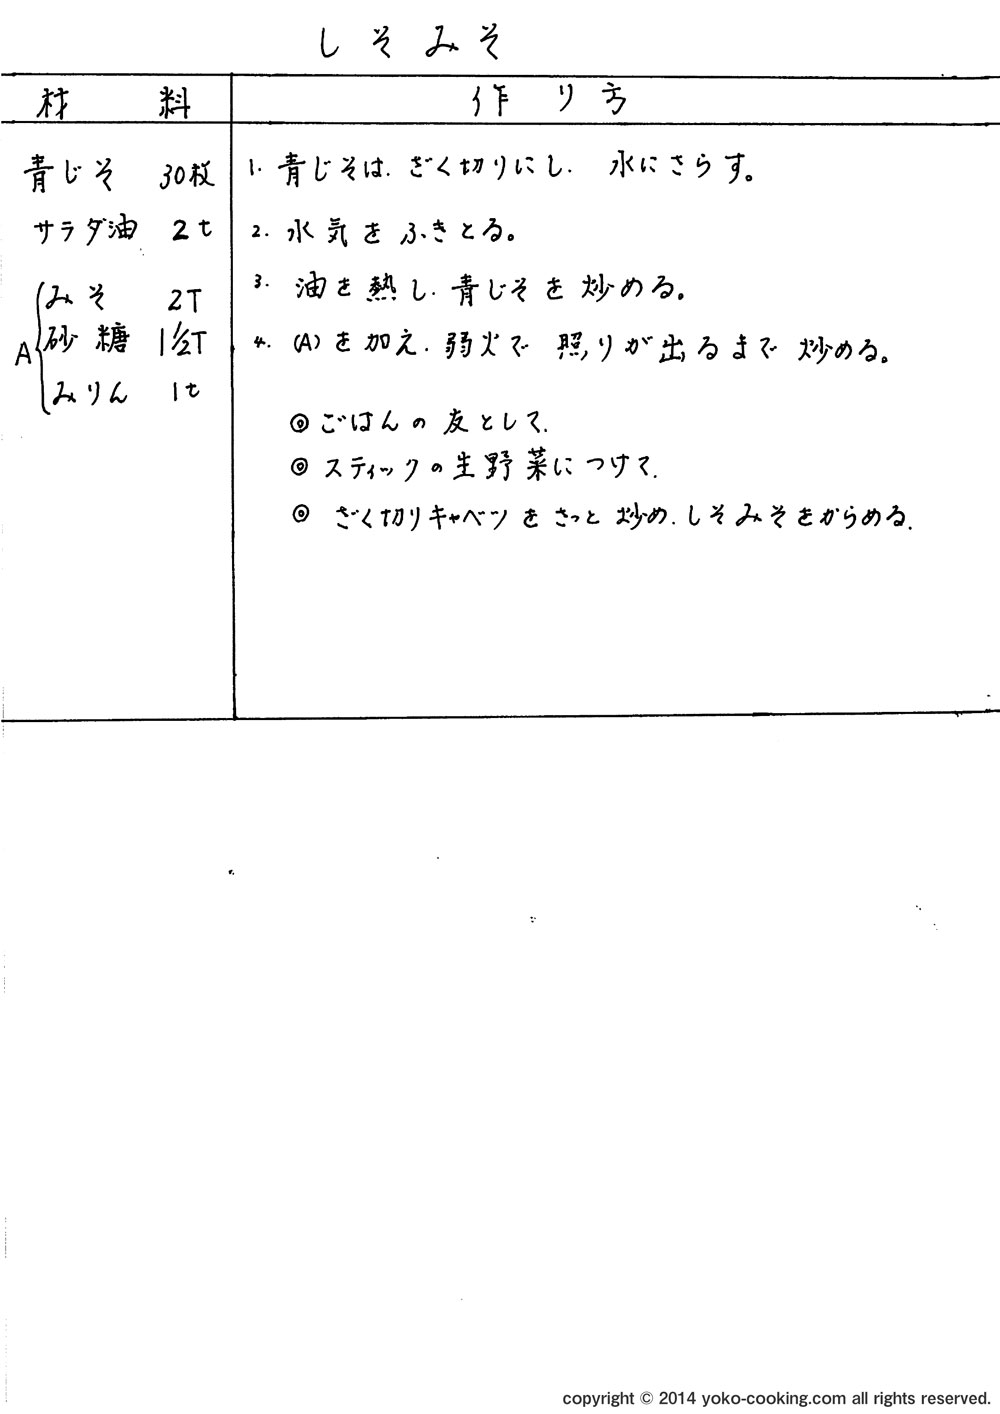 しそみそ
材料
作り方
青じそ 30枚
サラダ油 2t
A
みそ 2T
砂糖 1 1/2T
みりん 1t
1. 青じそは、ざく切りにし、水にさらす。
2. 水気をふきとる。
3. 油を熱し、青じそを炒める。
4. (A)を加え、弱火で照りが出るまで炒める。
◎ごはんの友として、
◎スティックの生野菜につけて、
◎ざく切りキャベツをさっと炒め、しそみそをからめる。
copyright © 2014 yoko-cooking.com all rights reserved.